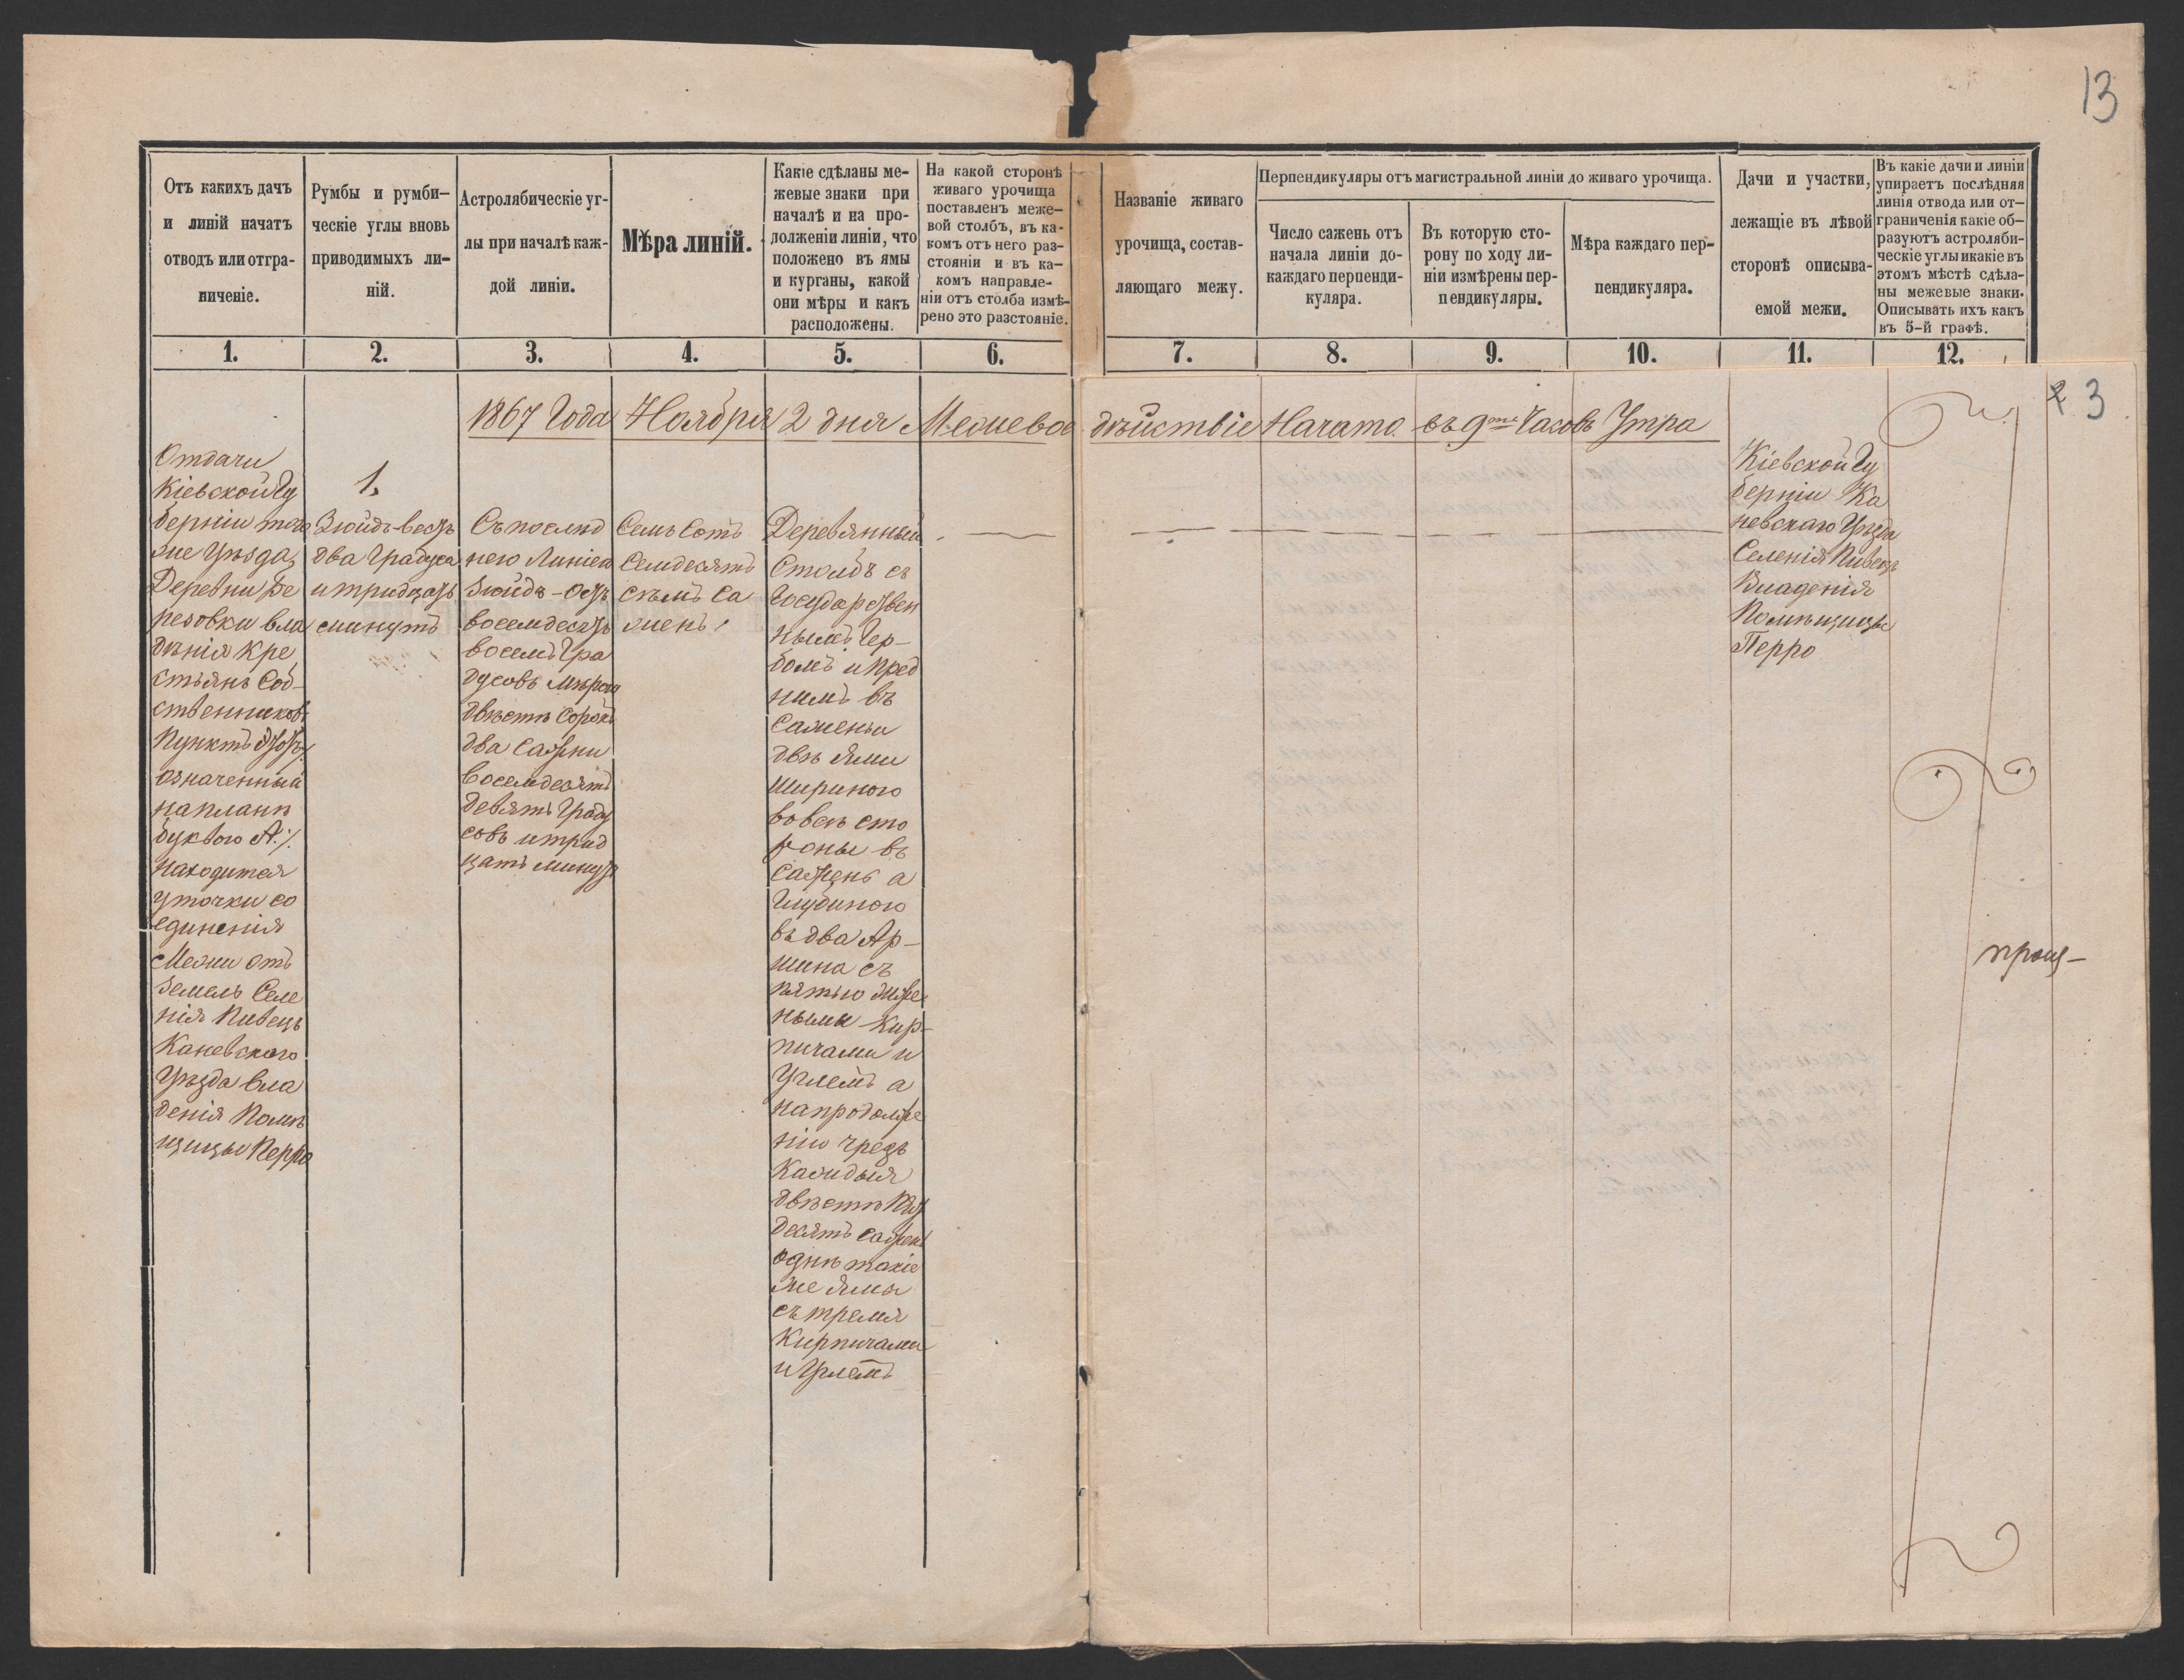 13
Отъ какихъ дачъ
и линій начатъ
отводъ или отгра-
ниченіе.
Румбы и румби-
ческіе углы вновь
приводимыхъ ли-
ній.
Астролябическіе уг-
лы при началѣ каж-
дой линіи.
Мѣра линій.
Какіе сдѣланы ме-
жевые знаки при
началѣ и на про-
долженіи линіи, что
положено въ ямы
и курганы, какой
они мѣры и какъ
расположены.
На какой сторонѣ
живаго урочища
поставленъ меже-
вой столбъ, въ ка-
комъ отъ него раз-
стояніи и въ ка-
комъ направле-
ніи отъ столба измѣ-
рено это разстояніе.
Названіе живаго
урочища, состав-
ляющаго межу.
Перпендикуляры отъ магистральной линіи до живаго урочища.
Число сажень отъ
начала линіи до-
каждаго перпенди-
куляра.
Въ которую сто-
рону по ходу ли-
ніи измѣрены пер-
пендикуляры.
Мѣра каждаго пер-
пендикуляра.
Дачи и участки,
лежащіе въ лѣвой
сторонѣ описыва-
емой межи.
Въ какіе дачи и линіи
упираетъ послѣдняя
линія отвода или от-
граниченія какіе об-
разуютъ астроляби-
ческіе углы и какіе въ
этомъ мѣстѣ сдѣла-
ны межевые знаки.
Описывать ихъ какъ
въ 5-й графѣ.
1. 2. 3. 4. 5. 6. 7. 8. 9. 10. 11. 12.
3
1867 Года Ноября 2 дня Межевое дѣйствіе Начато въ 9ть Часовъ Утра
Отдачи
Кіевской Гу
берніи того
же Уѣзда,
Деревни Бе
резовки вла
дѣнія Кре
стьянъ Соб-
ственниковъ
Пунктъ этотъ
означенный
напланѣ
буквою А ·/.
находится
уточки со
единенія
Межи отъ
земель Селе
нія Пивецъ
Каневского
Уѣзда вла
денія Помѣ
щицы Перро
1.
Зюйдъ-вестъ
два Градуса
и тридцать
минутъ
Съ послѣд
нею Линіею
Зюйдъ-Остъ
восемдесятъ
восемь Гра
дусовъ мѣрою
двѣсти сорокъ
два сажни
восемдесятъ
девять Граду
совъ и трид
цать минутъ
Семь Сотъ
Семдесятъ
семь Са
жень
Деревянный
Столбъ съ
Государствен
нымъ Гер-
бомъ и пред
нимъ въ
сажени
двѣ ями
шириною
вовсѣ сто
роны въ
Сажень а
Глубиною
въ два Ар-
шина съ
пятью жже
ными Кир-
пичами и
Углемъ а
напродолже
нію чрезъ
Каждыя
двѣсти пят
десятъ сажень
однѣ такіе
же ямы
съ тремя
Кирпичами
и Углемъ
Кіевской Гу
берніи Ка
невскаго Уѣзда
Селенія Пивецъ
Владенія
Помѣщицы
Перро